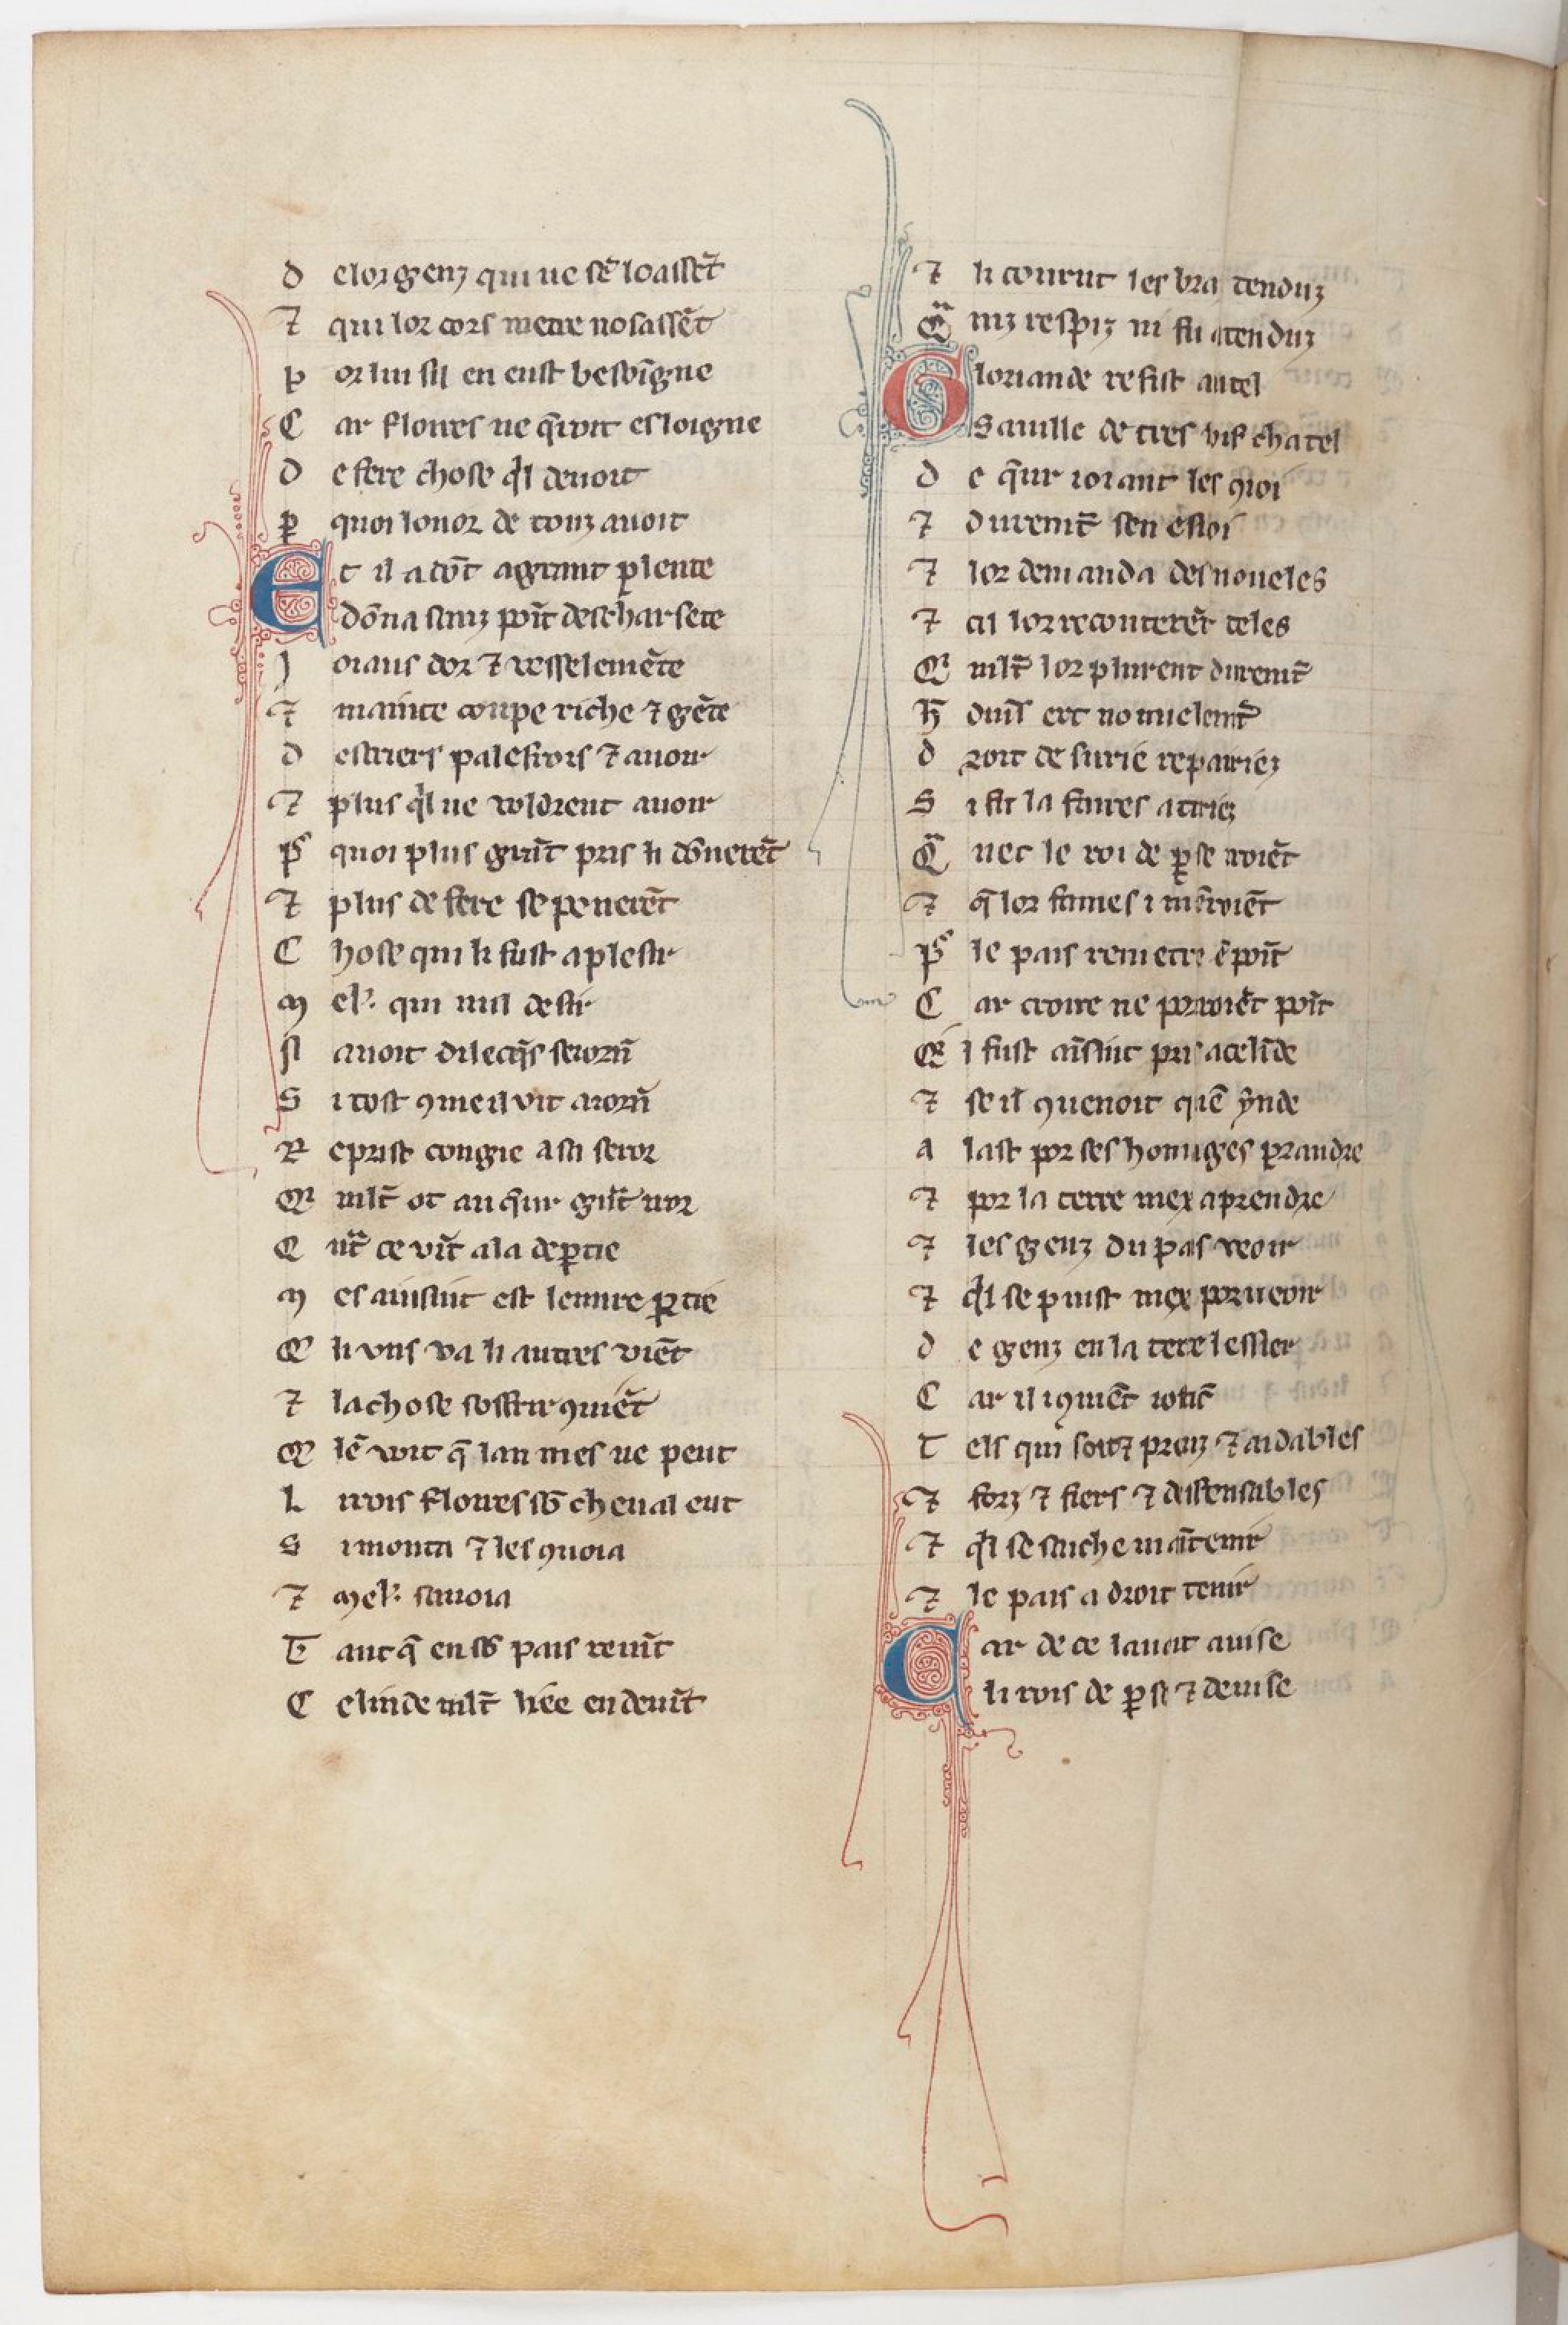 D elor genz qui ne sẽ loassẽt
⁊ qui lor cors metre nosassẽt
P or lui sil en eust besoĩgne
C ar floires ne q̃roit esloigne
D e fere chose q̉l deuoit
ꝑ quoi lonor de touz auoit
E t il a dõt a grant plente
dõna sanz poĩt descharsete
J oiaus dor ⁊ vesselemẽte
⁊ mainte coupe riche ⁊ gẽte
D estriers palefrois ⁊ auoir
⁊ plus q̉l ne voldrent auoir
P̉ quoi plus grãt pris li dõnerẽt
⁊ plus de fere se penerẽt
C hose qui li fust a plesir
M el̉. qui nul desir
N auoit dilecq̃s seiorñ
S i tost ꝯme il vit aiorñ
R eprist congie a sa seror
M ult̃ ot au q̃ur grãt iror
Q ñt ce vĩt a la deꝑtie
M es ainsinc est leuure ꝑtie
Q̉ li vns va li autres viẽt
⁊ la chose soffrir ꝯuiẽt
Q̉ lẽ voit q̃ lan mes ne peut
L i rois floires sõ cheual eut
S i monta ⁊ les ꝯuoia
⁊ mel̉. sauoia
T ant q̃ en sõ pais reuĩt
C elinde mlt̃ liee en deuĩt
⁊ li courut les bra tenduz
Q̃ niz respiz ni fu atenduz
G loriande refist autel
Sauille de tres vif chatel
D e q̃ur ioiant les ꝯioi
⁊ duremt̃ sen esioi
⁊ lor demanda des noueles
⁊ cil lor reconterẽt teles
Q̉ mlt̃ lor plurent duremt̃
H̃ duil̃ ert nouuelemt̃
D roit de surie repairiez
S i fu la faires atiriez
Q̃ uec le roi de ꝑse iroiẽt
⁊ q̃ lor fames i mẽroiẽt
P̉ le pais remetre ẽ poĩt
C ar croire ne porroiẽt poĩt
Q̉ i fust aĩsinc pris acelĩde
⁊ se il ꝯuenoit qiẽ ynde
A last por ses homages prandre
⁊ por la terre mex aprendre
⁊ les genz du pais veoir
⁊ q̉l se puist mex porueoir
D e genz en la terre lessier
C ar il i ꝯuiẽt
T els qui soiẽt preuz ⁊ aidables
⁊ forz ⁊ fiers ⁊ deffensables
⁊ q̉l se sache mãtenir
⁊ le pais a droit tenir
C ar de ce lauoit auise
li rois de ꝑse ⁊ deuise